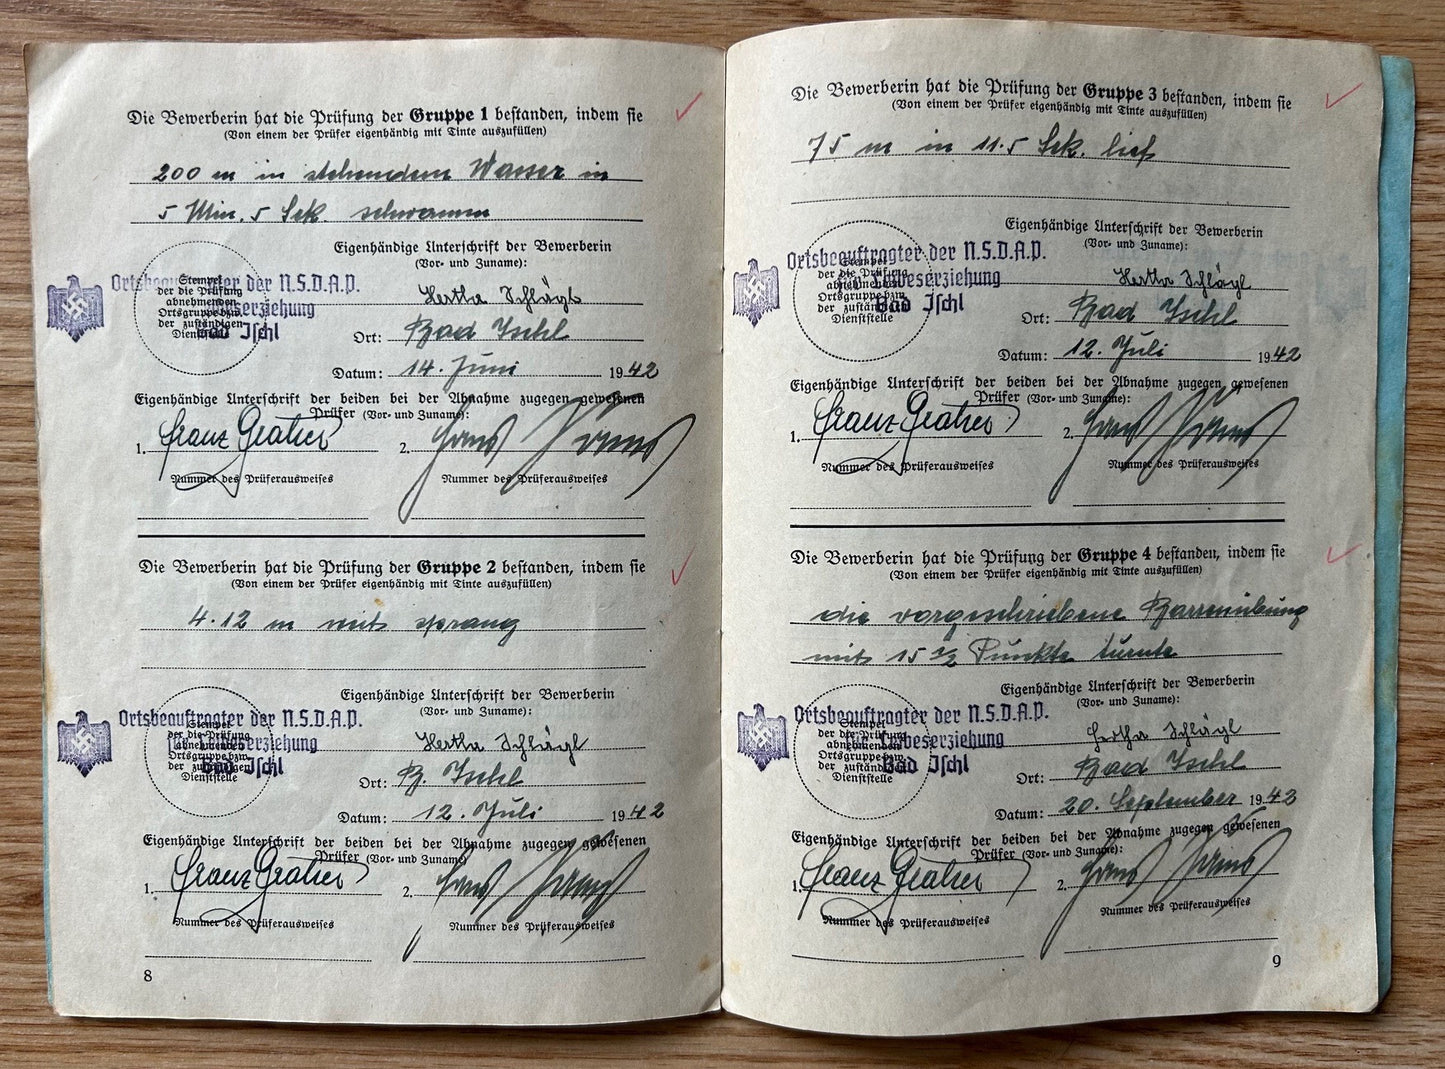 Die Bewerberin hat die Prüfung der Gruppe 1 bestanden, indem sie
(Von einem der Prüfer eigenhändig mit Tinte auszufüllen)
200 m in stehendem Wasser in
5 Min. 5 Sek. schwamm
Eigenhändige Unterschrift der Bewerberin
(Vor- und Zuname):
Ortsbeauftragter der N.S.D.A.P.
Stempel
der die Prüfung
abnehmenden
Ortsgruppe bzw.
der zuständigen
Dienststelle
Leibeserziehung
Bad Ischl
Hertha Schlögl
Ort: Bad Ischl
Datum: 14. Juni 1942
Eigenhändige Unterschrift der beiden bei der Abnahme zugegen gewesenen
Prüfer (Vor- und Zuname):
1. Franz 2. Hans
Nummer des Prüferausweises Nummer des Prüferausweises
Die Bewerberin hat die Prüfung der Gruppe 2 bestanden, indem sie
(Von einem der Prüfer eigenhändig mit Tinte auszufüllen)
4.12 m weit sprang
Eigenhändige Unterschrift der Bewerberin
(Vor- und Zuname):
Ortsbeauftragter der N.S.D.A.P.
Stempel
der die Prüfung
abnehmenden
Ortsgruppe bzw.
der zuständigen
Dienststelle
für Leibeserziehung
Bad Ischl
Hertha Schlögl
Ort: B. Ischl
Datum: 12. Juli 1942
Eigenhändige Unterschrift der beiden bei der Abnahme zugegen gewesenen
Prüfer (Vor- und Zuname)
1. Franz 2. Hans
Nummer des Prüferausweises Nummer des Prüferausweises
8
Die Bewerberin hat die Prüfung der Gruppe 3 bestanden, indem sie
(Von einem der Prüfer eigenhändig mit Tinte auszufüllen)
75 m in 11.5 Sek. lief
Eigenhändige Unterschrift der Bewerberin
(Vor- und Zuname):
Ortsbeauftragter der N.S.D.A.P.
Stempel
der die Prüfung
abnehmenden
Ortsgruppe bzw.
der zuständigen
Dienststelle
für Leibeserziehung
Bad Ischl
Hertha Schlögl
Ort: Bad Ischl
Datum: 12. Juli 1942
Eigenhändige Unterschrift der beiden bei der Abnahme zugegen gewesenen
Prüfer (Vor- und Zuname):
1. Franz 2. Hans
Nummer des Prüferausweises Nummer des Prüferausweises
Die Bewerberin hat die Prüfung der Gruppe 4 bestanden, indem sie
(Von einem der Prüfer eigenhändig mit Tinte auszufüllen)
die vorgeschriebene Barrenübung
mit 15 1/2 Punkte turnte
Eigenhändige Unterschrift der Bewerberin
(Vor- und Zuname):
Ortsbeauftragter der N.S.D.A.P.
Stempel
der die Prüfung
abnehmenden
Ortsgruppe bzw.
der zuständigen
Dienststelle
für Leibeserziehung
Bad Ischl
Hertha Schlögl
Ort: Bad Ischl
Datum: 20. September 1942
Eigenhändige Unterschrift der beiden bei der Abnahme zugegen gewesenen
Prüfer (Vor- und Zuname):
1. Franz 2. Hans
Nummer des Prüferausweises Nummer des Prüferausweises
9